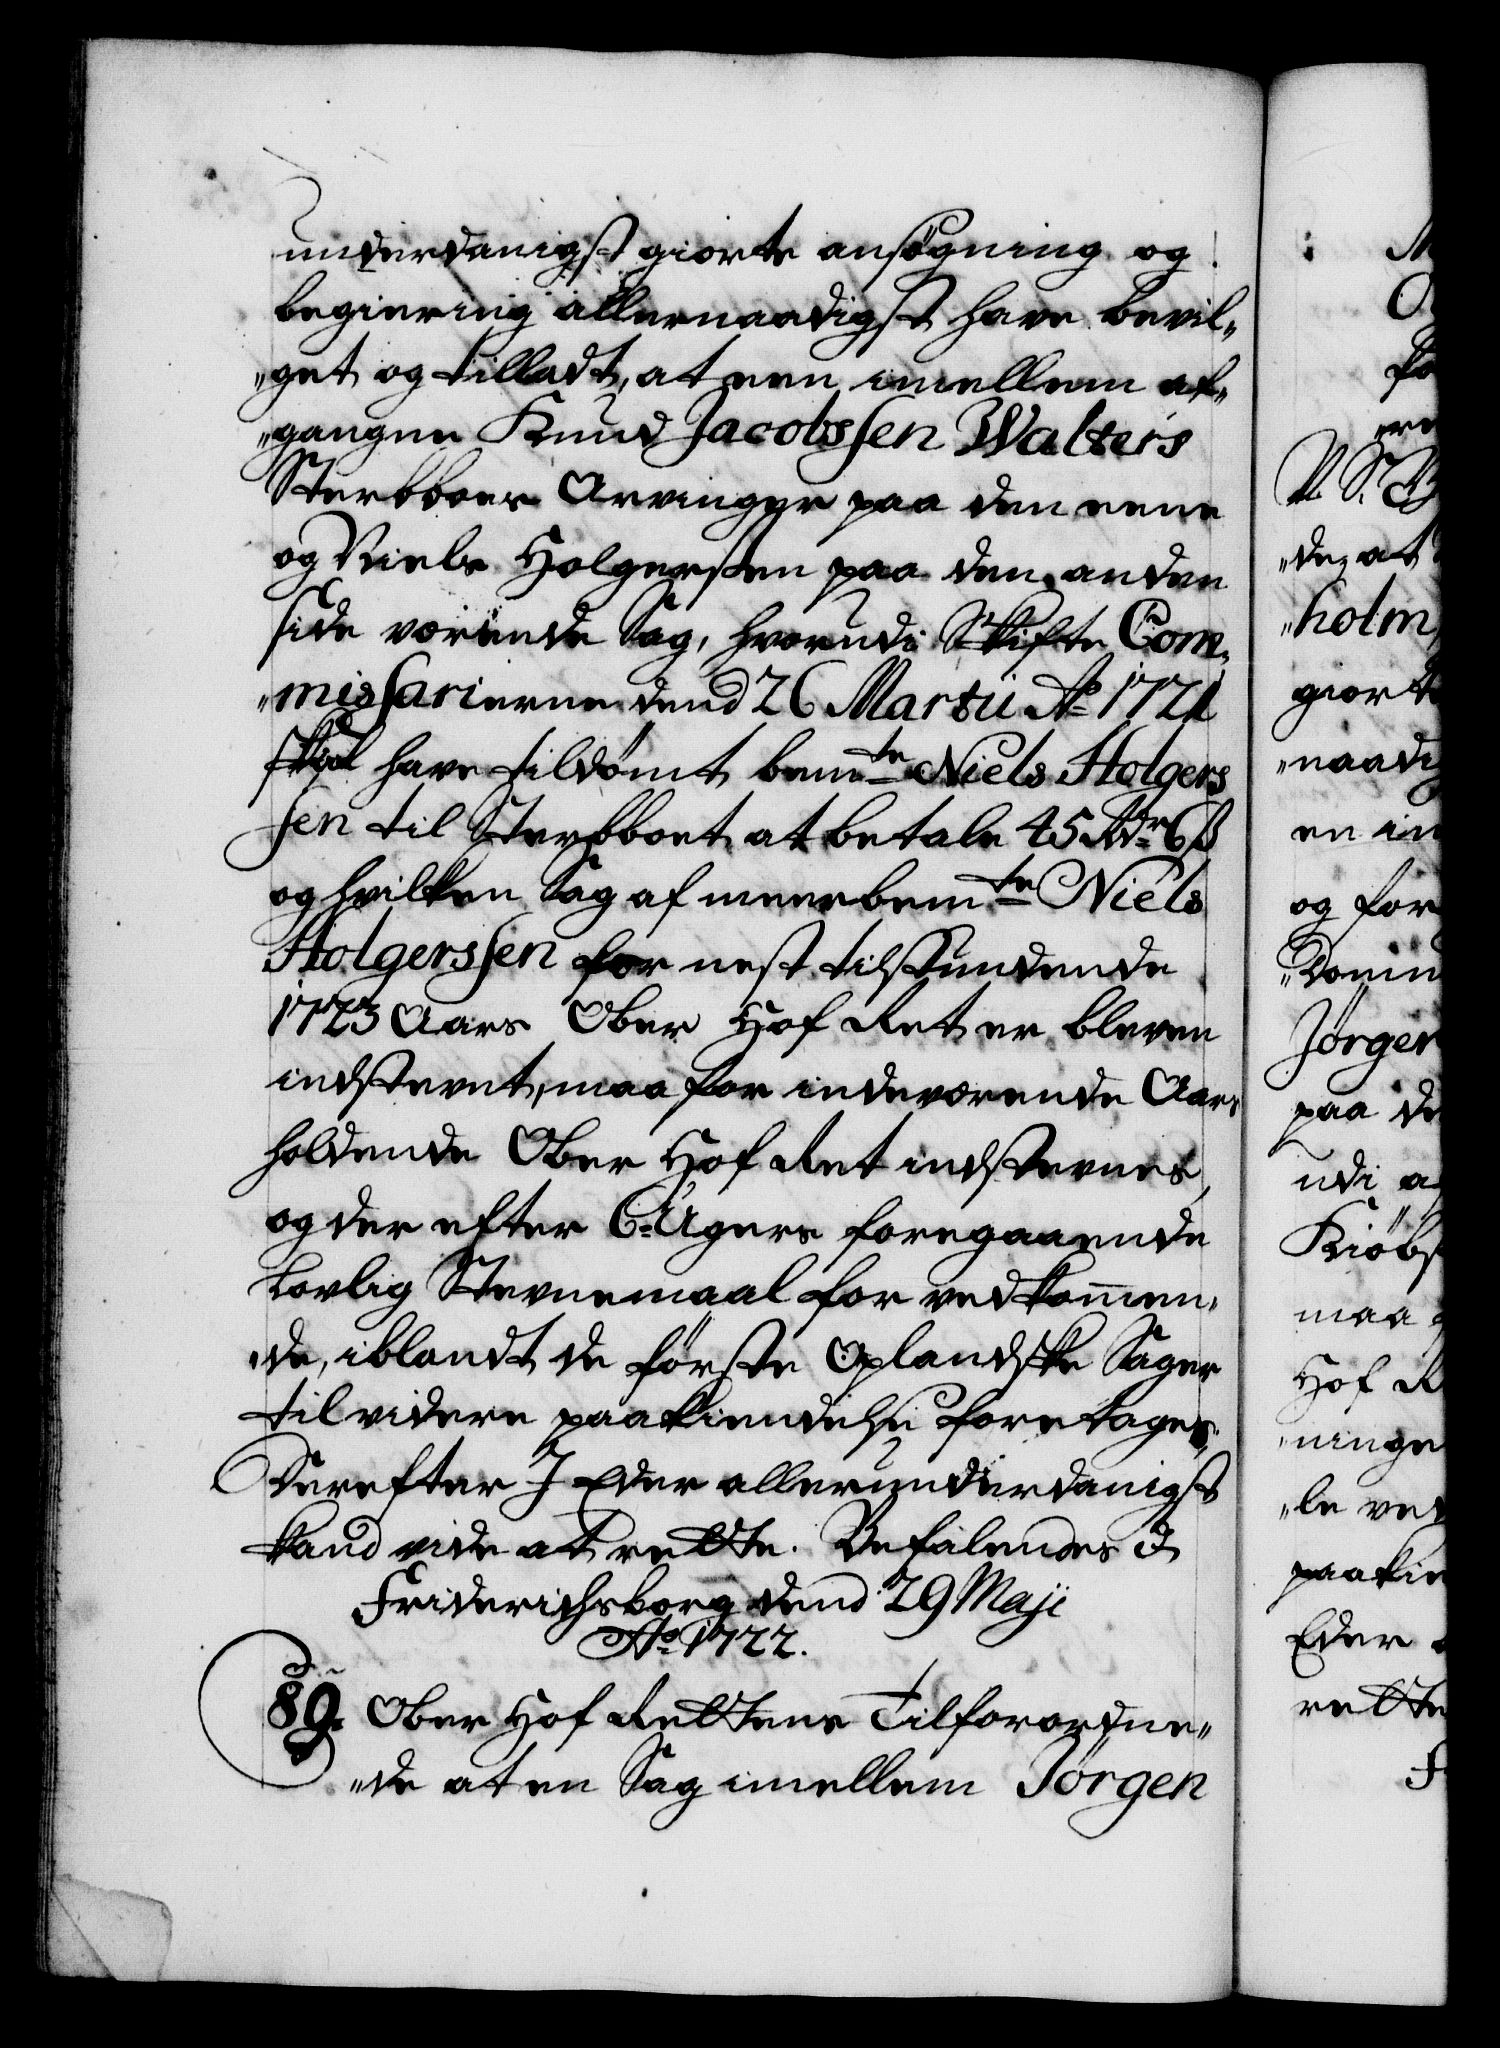 underdanigst giorte ansøgning og
begiering allernaadigst have bevil„
„get og tilladt, at een imellem af„
„gangne Knud Jacobssen Walters
Sterbboes Arvinger paa den eene
og Niels Holgersen paa den anden
side værende Sag, hvorudi Skifte Com„
„missarierne dend 26 Martii Ao 1721
skal have tildømt bemte Niels Holgers
sen til Sterbboet at betale 45 Rdr 6 ß
og hvilken Sag af meerbemte Niels
Holgerssen for nest tilstundende
1723 Aars Ober Hof Ret er bleven
indstevnt, maa for indeværende Aars
holdende Ober Hof Ret indstevnes,
og der efter 6 Ugers foregaaende
Lovlig Stevnemaal for vedkommen„
„de, iblandt de første Oplandske Sager
til videre paakiendelse foretages.
Derefter I Eder allerunderdanigst
kand vide at rette. Befalendes &
Friderichsborg dend 29 Maji
Ao 1722.
89. Ober Hof Rettens Tilforordne„
„de at en Sag imellem Jørgen
„de, at
„holm,
giort
„naadig
en im
og for
Jørgen
paa de
udi a
Kiøbs
maa
Hof R
„ninge
„le ved
paakien
Eder
rette